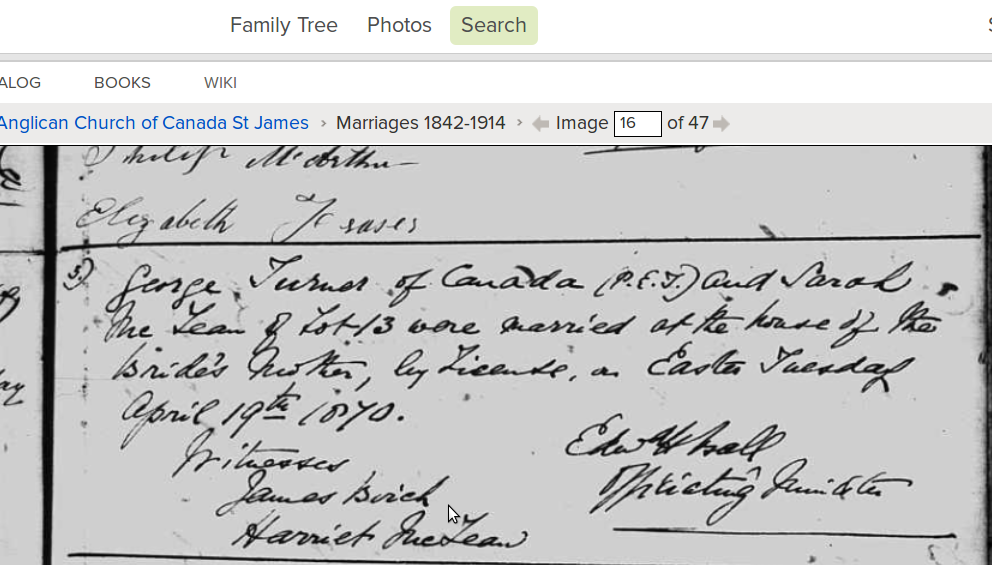 Family Tree Photos Search S
ALOG BOOKS WIKI
Anglican Church of Canada St James › Marriages 1842-1914 › Image 16 of 47
Philip McArthur
Elizabeth Fraser
5) George Turner of Canada (P.E.I.) and Sarah
McLean of Lot 13 were married at the house of the
Bride's Mother, by License, on Easter Tuesday
April 19th 1870.
Witnesses
James
Harriet McLean
Edw H Ball
Officiating Minister